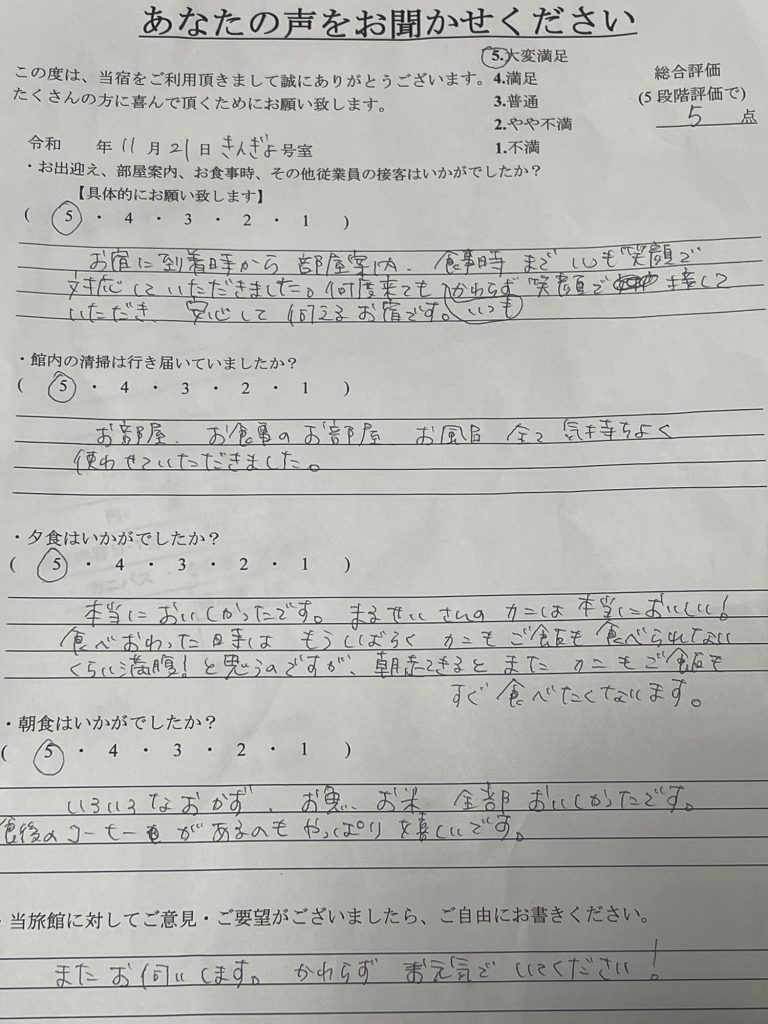 あなたの声をお聞かせください
この度は、当宿をご利用頂きまして誠にありがとうございます。
たくさんの方に喜んで頂くためにお願い致します。
5.大変満足
4.満足
3.普通
2.やや不満
1.不満
総合評価
(5段階評価で)
5 点
令和 年11月21日 きんぎょ号室
・お出迎え、部屋案内、お食事時、その他従業員の接客はいかがでしたか？
【具体的にお願い致します】
( 5 ・ 4 ・ 3 ・ 2 ・ 1 )
お宿に到着時から 部屋案内、食事時 まで いつも笑顔で
対応して いただきました。何度来ても かわらず 笑顔で 接して
いただき、安心して 伺える お宿です。いつも
・館内の清掃は行き届いていましたか？
( 5 ・ 4 ・ 3 ・ 2 ・ 1 )
お部屋、お食事のお部屋、お風呂 全て 気持ちよく
使わせていただきました。
・夕食はいかがでしたか？
( 5 ・ 4 ・ 3 ・ 2 ・ 1 )
本当に おいしかったです。まるせいさんの カニは 本当においしい！
食べおわった時は もうしばらく カニも ご飯も 食べられない
くらい満腹！と思うのですが、朝起きると また カニも ご飯も
すぐ 食べたくなります。
・朝食はいかがでしたか？
( 5 ・ 4 ・ 3 ・ 2 ・ 1 )
いろいろなおかず、お魚、お米 全部 おいしかったです。
食後のコーヒーがあるのも やっぱり 嬉しいです。
・当旅館に対してご意見・ご要望がございましたら、ご自由にお書きください。
また お伺いします。かわらず お元気で いてください！